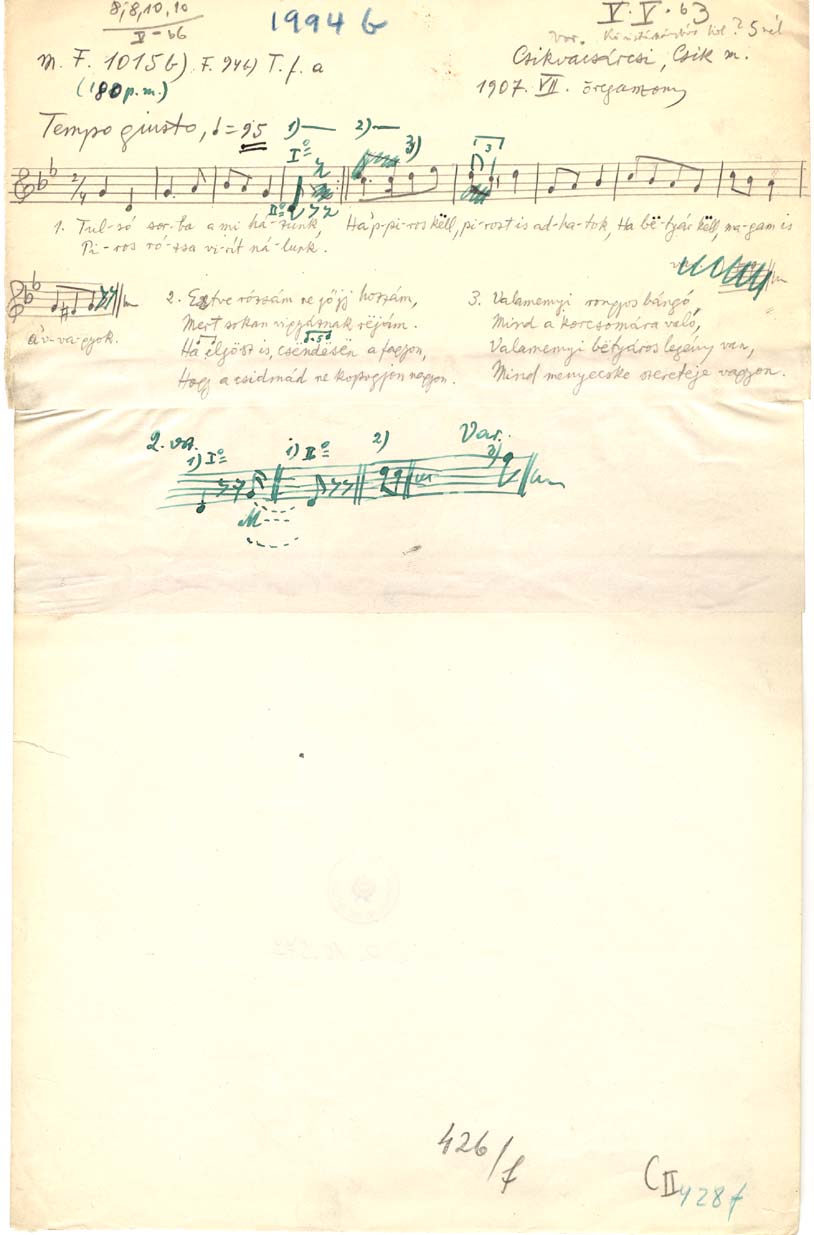 8,8,10,10
V - b6
1994 b
V. V. b3
var.
M. F. 1015b) F. 946) T. f. a
Csikvacsárcsi, Csik m.
(180 p.m.)
1907. VII.
Tempo giusto, ♩= 95
1) 2) 3)
I°
II°
2/4
3
1. Tul-só sor-ba a mi há-zunk, Hap-pi-ros këll, pi-rost is ad-ha-tok, Ha bë-tyár këll, ma-gam is
Pi-ros ró-zsa vi-rít ná-lunk.
áv-va-gyok.
2. Estve rózsám ne jőjj hozzám,
Mert sokan vigyáznak rëjám.
Ha eljösz is, csëndësën a fagyon,
Hogy a csidmád ne kopogjon nagyon.
3. Valamenyi rongyos bángó,
Mind a korcsomára való,
Valamenyi bëtyáros legény van,
Mind menyecske szeretője vagyon.
2. vsz.
1) I° 1) II° 2)
Var.
3)
426/f
C II 428f